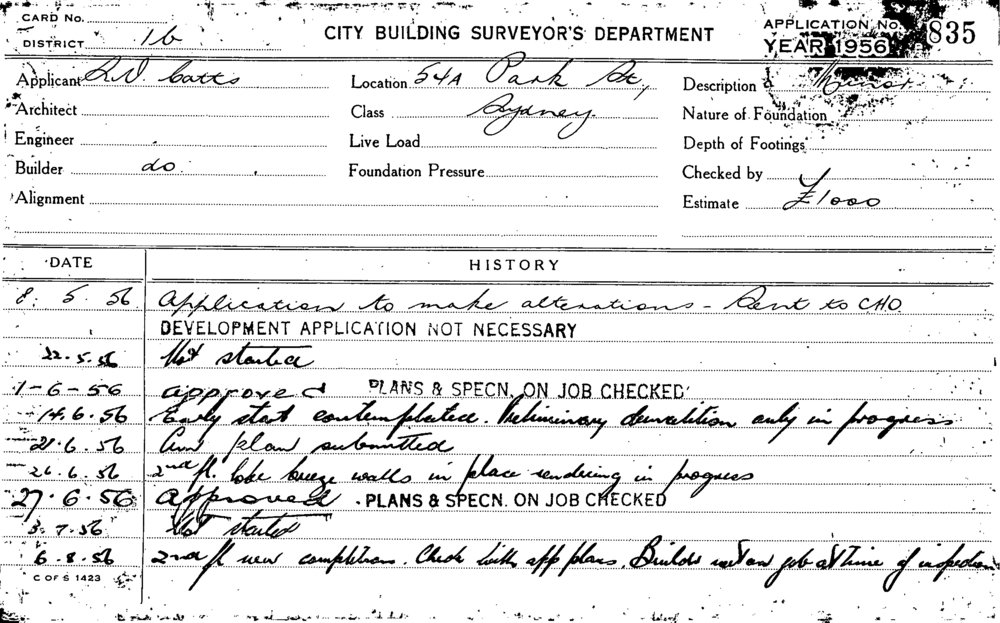 CARD No.
DISTRICT 16
CITY BUILDING SURVEYOR'S DEPARTMENT
APPLICATION No. 835
YEAR 1956
Applicant R.V. Catts
Location 54A Park St,
Description Minor
Architect
Class Sydney.
Nature of Foundation
Engineer
Live Load
Depth of Footings
Builder do.
Foundation Pressure
Checked by
Alignment
Estimate £1000
DATE HISTORY
8. 5. 56 Application to make alterations - Sent to CHO.
DEVELOPMENT APPLICATION NOT NECESSARY
22.5.56 Not started
1-6-56 approved PLANS & SPECN. ON JOB CHECKED
14.6.56 Early start contemplated. Preliminary demolition only in progress
21.6.56 plan submitted
26.6.56 2nd fl. coke breeze walls in place rendering in progress
27.6.56 Approved PLANS & SPECN. ON JOB CHECKED
3.7.56 Not started
6.8.56 2nd fl new . Check with app plans. Builder not on job at time of inspection
C OF S 1423